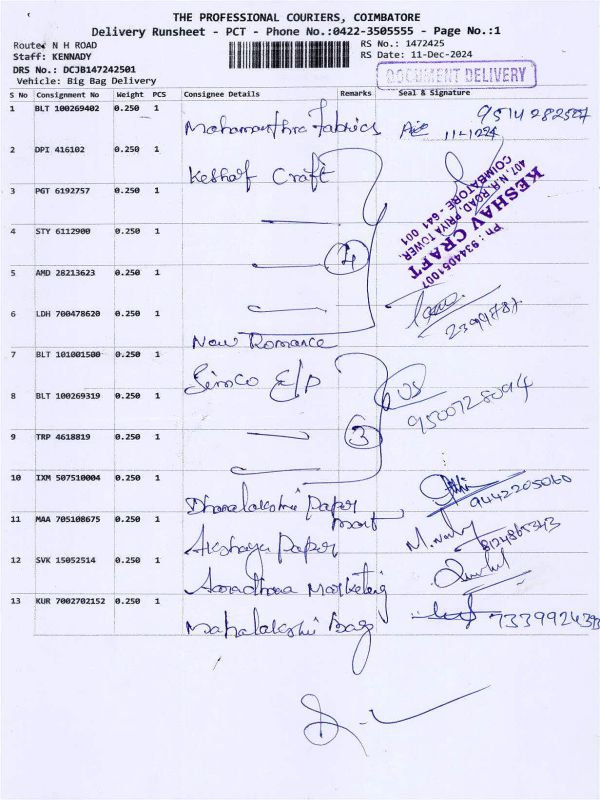 THE PROFESSIONAL COURIERS, COIMBATORE
Delivery Runsheet - PCT - Phone No.:0422-3505555 - Page No.:1
Route: N H ROAD
RS No.: 1472425
Staff: KENNADY
RS Date: 11-Dec-2024
DRS No.: DCJB147242501
Vehicle: Big Bag Delivery
DOCUMENT DELIVERY
S No Consignment No Weight PCS Consignee Details Remarks Seal & Signature
1 BLT 100269402 0.250 1 Mahamanthra Fabrics 9514282587
11-1224
2 DPI 416102 0.250 1 Keshaf Craft
KESHAV CRAFT
407, N.H.ROAD, PRIYA TOWER,
COIMBATORE - 641 001
Ph : 9344051007
3 PGT 6192757 0.250 1
4 STY 6112900 0.250 1
4
5 AMD 28213623 0.250 1
6 LDH 700478620 0.250 1 New Romance
2399787
7 BLT 101001500 0.250 1 Simco E/P
8 BLT 100269319 0.250 1
9500728094
9 TRP 4618819 0.250 1
3
10 IXM 507510004 0.250 1 Dhanalakshmi Paper mart 9442205060
11 MAA 705108675 0.250 1 Akshaya Paper 8124865343
12 SVK 15052514 0.250 1 Aaradhna Marketing
13 KUR 7002702152 0.250 1 Mahalakshmi Bag